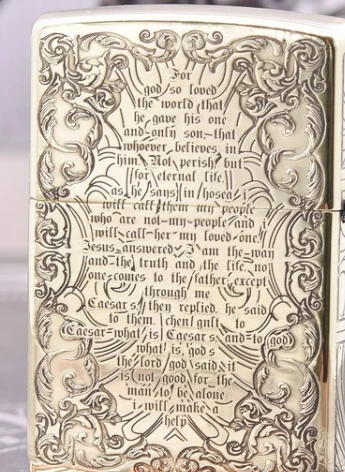 For
god so loved
the world that
he gave his one
and only son, that
whoever believes in
him Not perish but
for eternal life.
as he sans in hosea i
will call them my people
who are not-my-people and i
will-call-her my loved-one.
Jesus answered I am the wan
and the truth and the life, no
one comes to the father except
through me
Caesar s, they replied. he said
to them, chen gnft to
Caesar what is Caesar s. and to god
what is god s
the lord god said it
is not good for the
man to be alone
i will make a
help